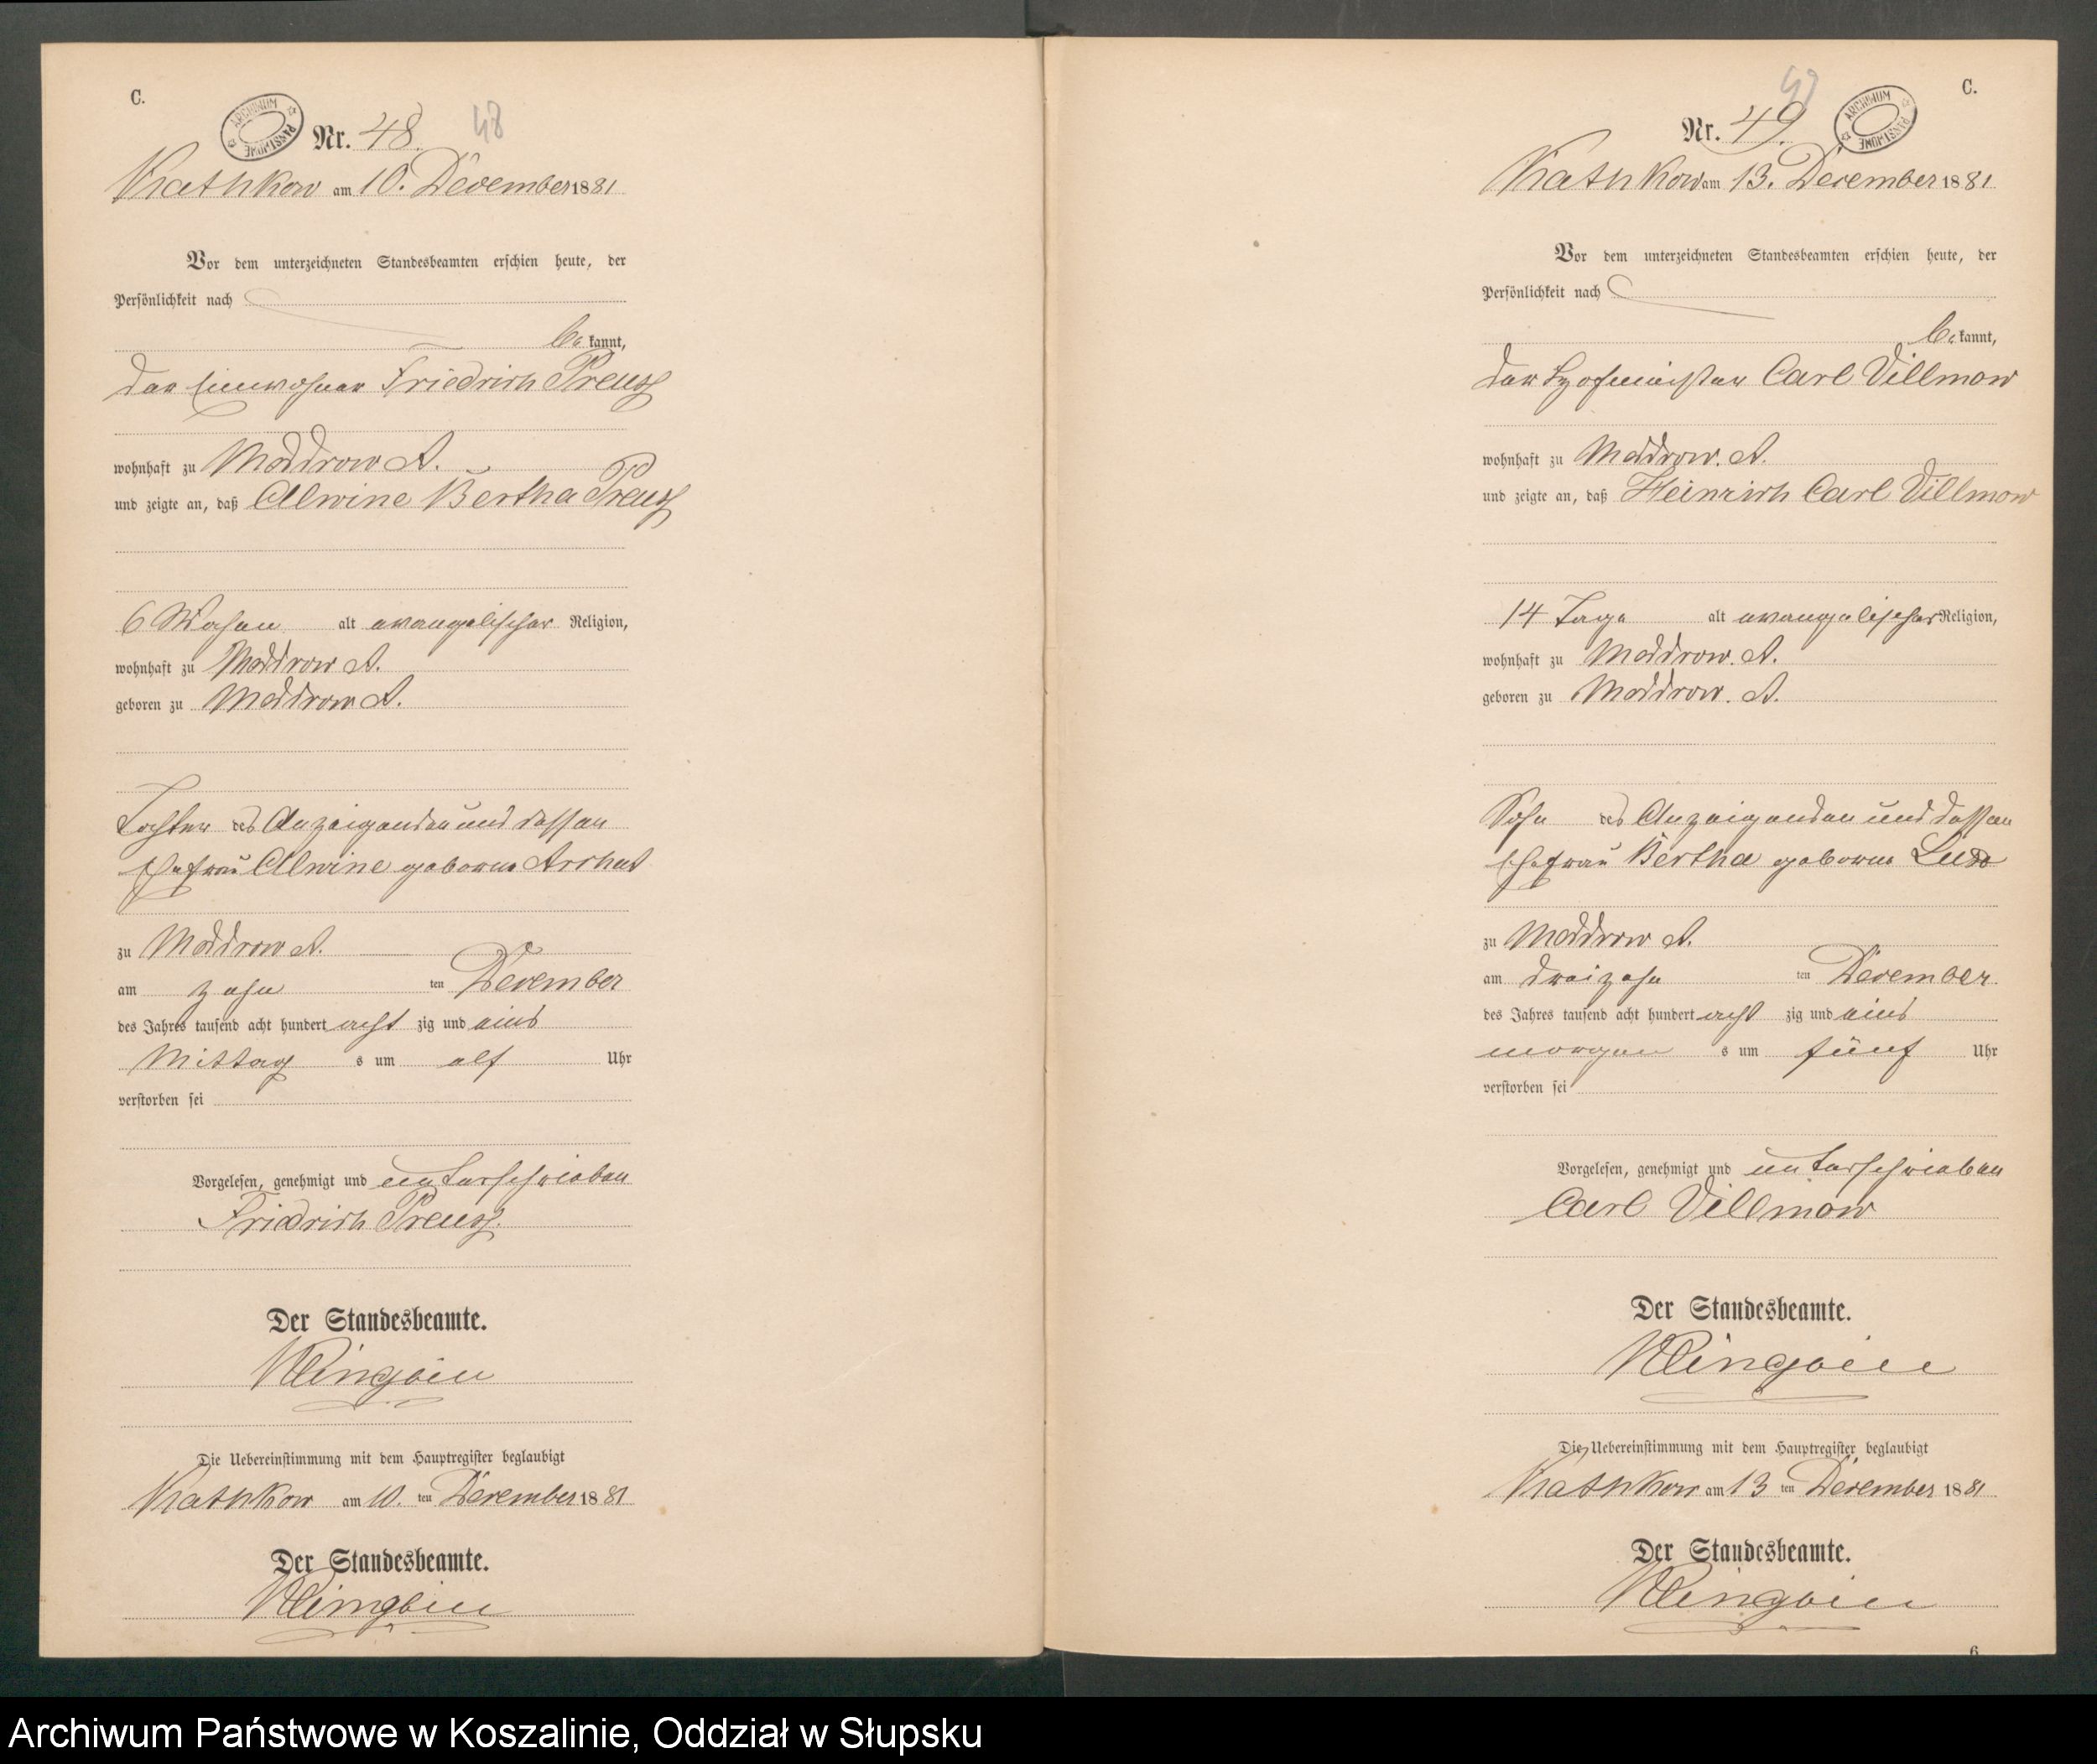 C.
ARCHIWUM PAŃSTWOWE
Nr. 48. 48
Kathkow am 10. December 1881
Vor dem unterzeichneten Standesbeamten erschien heute, der
Persönlichkeit nach
bekannt,
der Einwohner Friedrich Preuß
wohnhaft zu Moddrow A.
und zeigte an, daß Alwine Bertha Preuß
6 Wochen alt evangelischer Religion,
wohnhaft zu Moddrow A.
geboren zu Moddrow A.
Tochter des Anzeigenden und dessen
Ehefrau Alwine geborne
zu Moddrow A.
am zehn ten December
des Jahres tausend acht hundert acht zig und eins
Mittag s um elf Uhr
verstorben sei
Vorgelesen, genehmigt und unterschrieben
Friedrich Preuß.
Der Standesbeamte.
Die Uebereinstimmung mit dem Hauptregister beglaubigt
Kathkow am 10. ten December 1881
Der Standesbeamte.
C.
ARCHIWUM PAŃSTWOWE
Nr. 49. 49
Kathkow am 13. December 1881
Vor dem unterzeichneten Standesbeamten erschien heute, der
Persönlichkeit nach
bekannt,
der Hofmeister Carl Villmow
wohnhaft zu Moddrow. A.
und zeigte an, daß Heinrich Carl Villmow
14 Tage alt evangelischer Religion,
wohnhaft zu Moddrow. A.
geboren zu Moddrow. A.
Sohn des Anzeigenden und dessen
Ehefrau Bertha geborne
zu Moddrow A.
am dreizehn ten December
des Jahres tausend acht hundert acht zig und eins
morgen s um fünf Uhr
verstorben sei
Vorgelesen, genehmigt und unterschrieben
Carl Villmow
Der Standesbeamte.
Die Uebereinstimmung mit dem Hauptregister beglaubigt
Kathkow am 13 ten December 1881
Der Standesbeamte.
6
Archiwum Państwowe w Koszalinie, Oddział w Słupsku